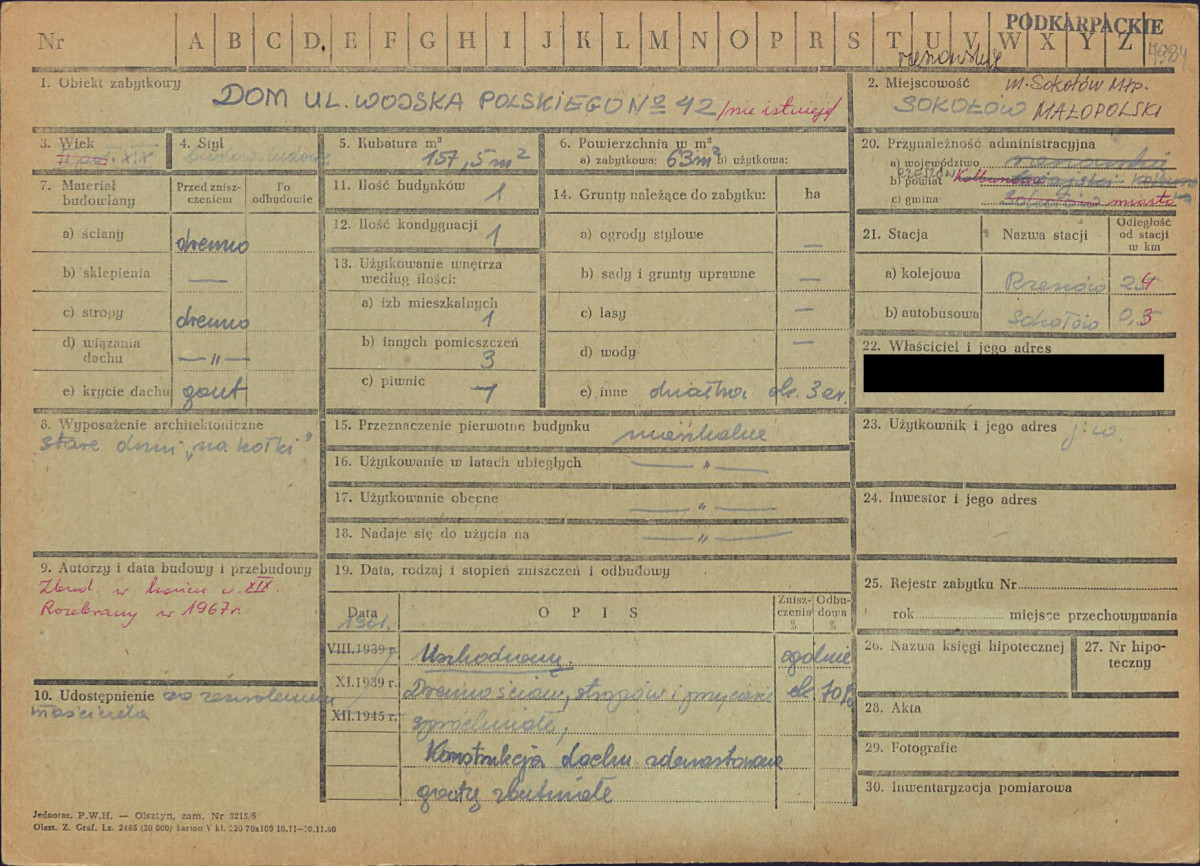 PODKARPACKIE
Nr A B C D E F G H I J K L M N O P R S T U V W X Y Z
1. Obiekt zabytkowy
DOM UL. WOJSKA POLSKIEGO Nº 42 /nie istnieje/
2. Miejscowość
m. Sokołów Młp.
SOKOŁÓW MAŁOPOLSKI
3. Wiek
XIX
4. Styl
5. Kubatura m³
157,5 m²
6. Powierzchnia w m²
a) zabytkowa: 63 m² b) użytkowa:
7. Materiał budowlany
Przed zniszczeniem
Po odbudowie
a) ściany drewno
b) sklepienia —
c) stropy drewno
d) wiązania dachu — " —
e) krycie dachu gont
8. Wyposażenie architektoniczne
stare drzwi „na kołki"
9. Autorzy i data budowy i przebudowy
Zbud. w końcu w. XIX.
Rozebrany w 1967 r.
10. Udostępnienie za zezwoleniem
właściciela
11. Ilość budynków 1
12. Ilość kondygnacji 1
13. Użytkowanie wnętrza według ilości:
a) izb mieszkalnych 1
b) innych pomieszczeń 3
c) piwnic
14. Grunty należące do zabytku: ha
a) ogrody stylowe —
b) sady i grunty uprawne —
c) lasy —
d) wody —
e) inne działka ok. 3 ar.
15. Przeznaczenie pierwotne budynku mieszkalne
16. Użytkowanie w latach ubiegłych — " —
17. Użytkowanie obecne — " —
18. Nadaje się do użycia na — " —
19. Data, rodzaj i stopień zniszczeń i odbudowy
Data
OPIS
Zniszczenia %
Odbudowa %
1961.
VIII.1939 r. Uszkodzony. ogólnie
XI.1939 r. Drewno ścian, stropów i przyciesie ok. 70%
XII.1945 r. spróchniałe,
Konstrukcja dachu zdewastowana
gonty zbutwiałe
20. Przynależność administracyjna
a) województwo
b) powiat RZESZÓW
c) gmina miasto
21. Stacja
Nazwa stacji
Odległość od stacji w km
a) kolejowa Rzeszów 24
b) autobusowa Sokołów 0,3
22. Właściciel i jego adres
23. Użytkownik i jego adres j.w.
24. Inwestor i jego adres
25. Rejestr zabytku Nr
rok miejsce przechowywania
26. Nazwa księgi hipotecznej
27. Nr hipoteczny
28. Akta
29. Fotografie
30. Inwentaryzacja pomiarowa
Jednoraz. P.W.H. — Olsztyn, zam. Nr 3215/5
Olszt. Z. Graf. Lz. 2485 (30 000) karton V kl. 220 70x100 10.11—30.11.60